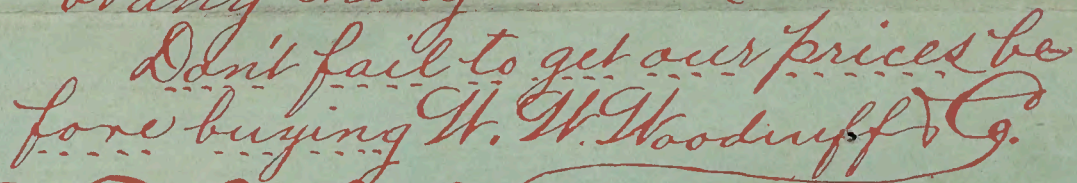 Don't fail to get our prices be
fore buying W. W. Woodruff & Co.